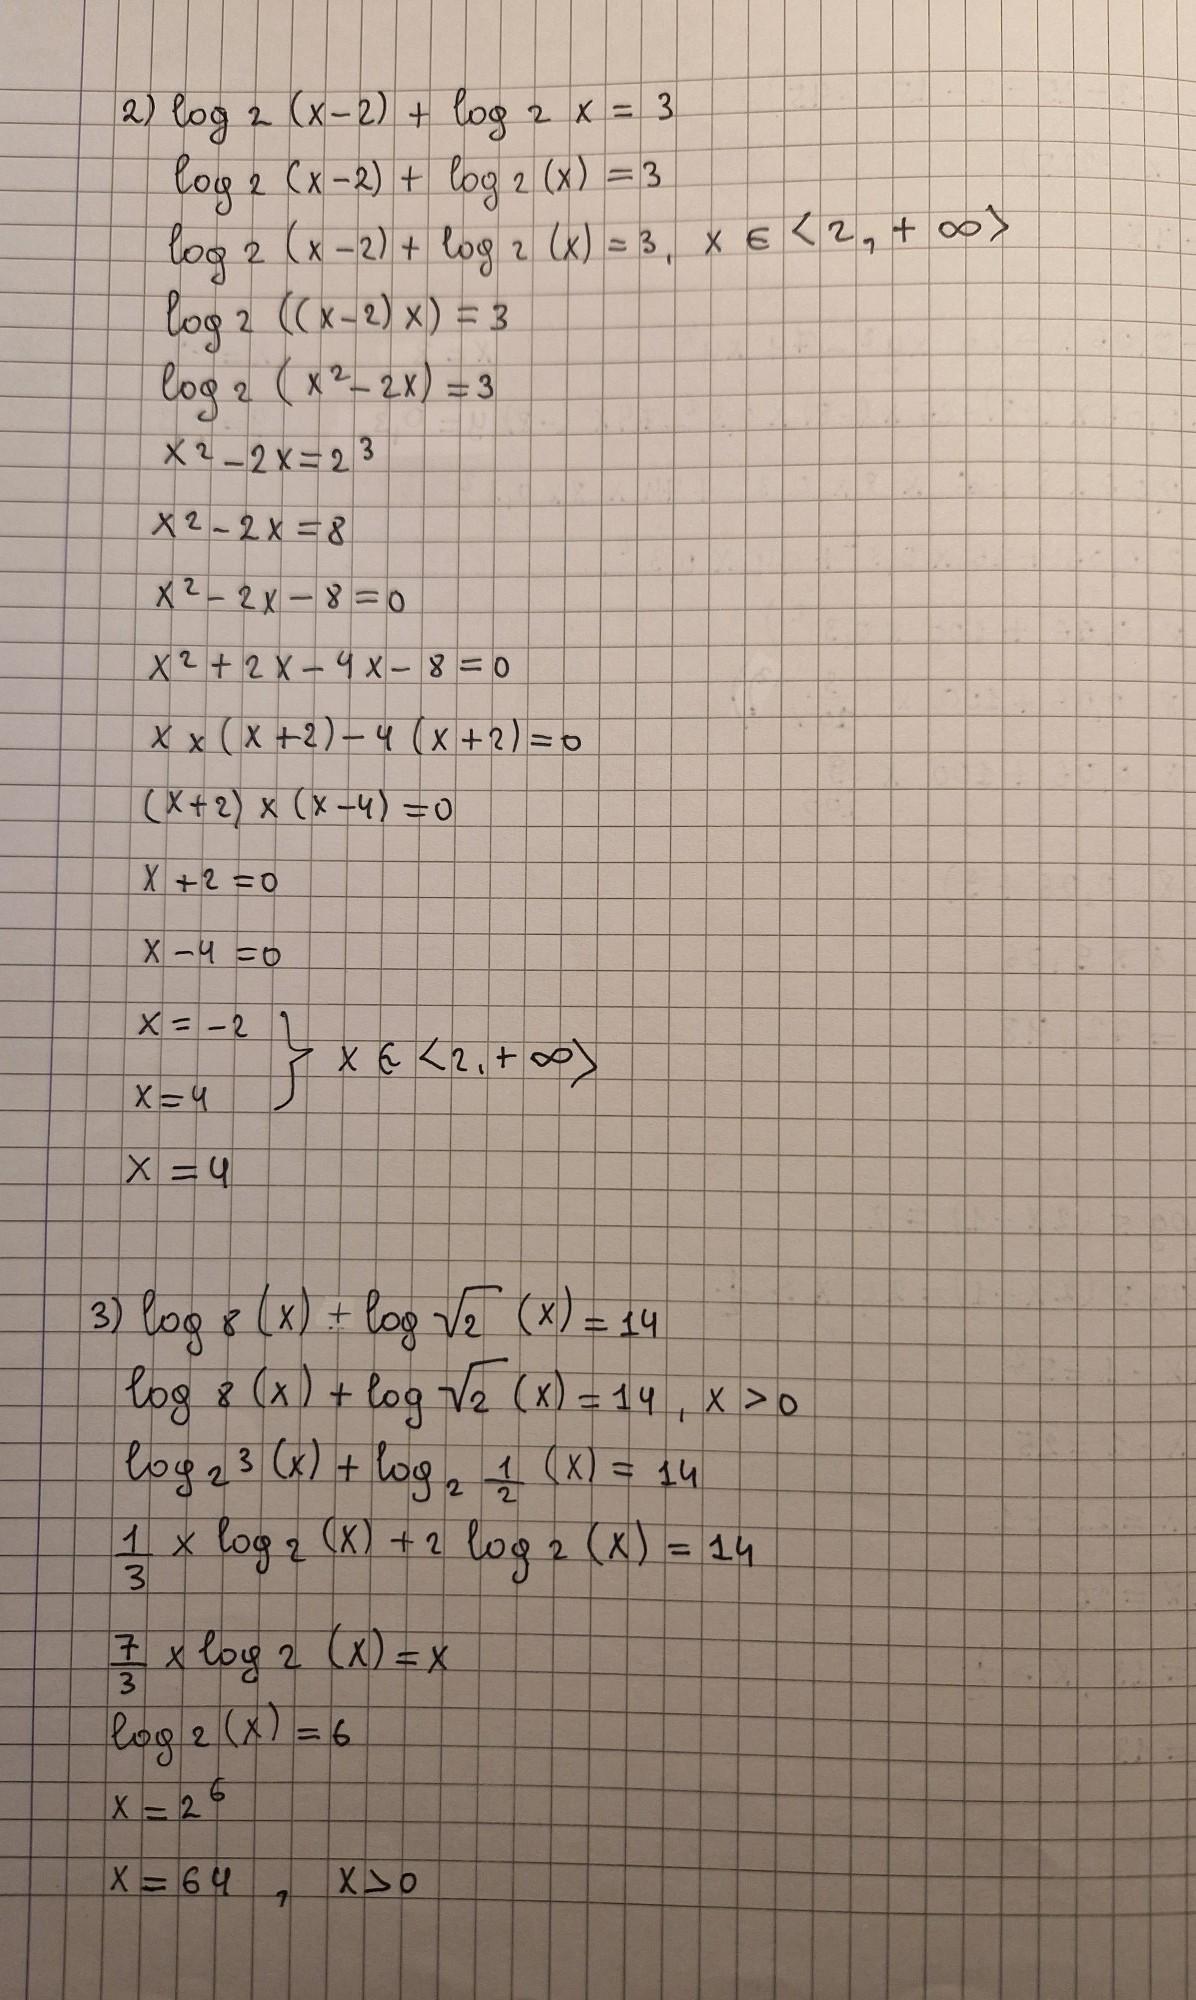 2) log 2 (x-2) + log 2 x = 3
log 2 (x-2) + log 2 (x) = 3
log 2 (x-2) + log 2 (x) = 3, x ∈ <2, + ∞>
log 2 ((x-2) x) = 3
log 2 (x² - 2x) = 3
x² - 2x = 2³
x² - 2x = 8
x² - 2x - 8 = 0
x² + 2x - 4x - 8 = 0
x × (x+2) - 4 (x+2) = 0
(x+2) × (x-4) = 0
x + 2 = 0
x - 4 = 0
x = -2
x = 4 } x ∈ <2, + ∞>
x = 4
3) log 8 (x) + log √2 (x) = 14
log 8 (x) + log √2 (x) = 14, x > 0
log₂ 3 (x) + log₂ 1/2 (x) = 14
1/3 × log 2 (x) + 2 log 2 (x) = 14
7/3 × log 2 (x) = x
log 2 (x) = 6
x = 2⁶
x = 64 , x > 0